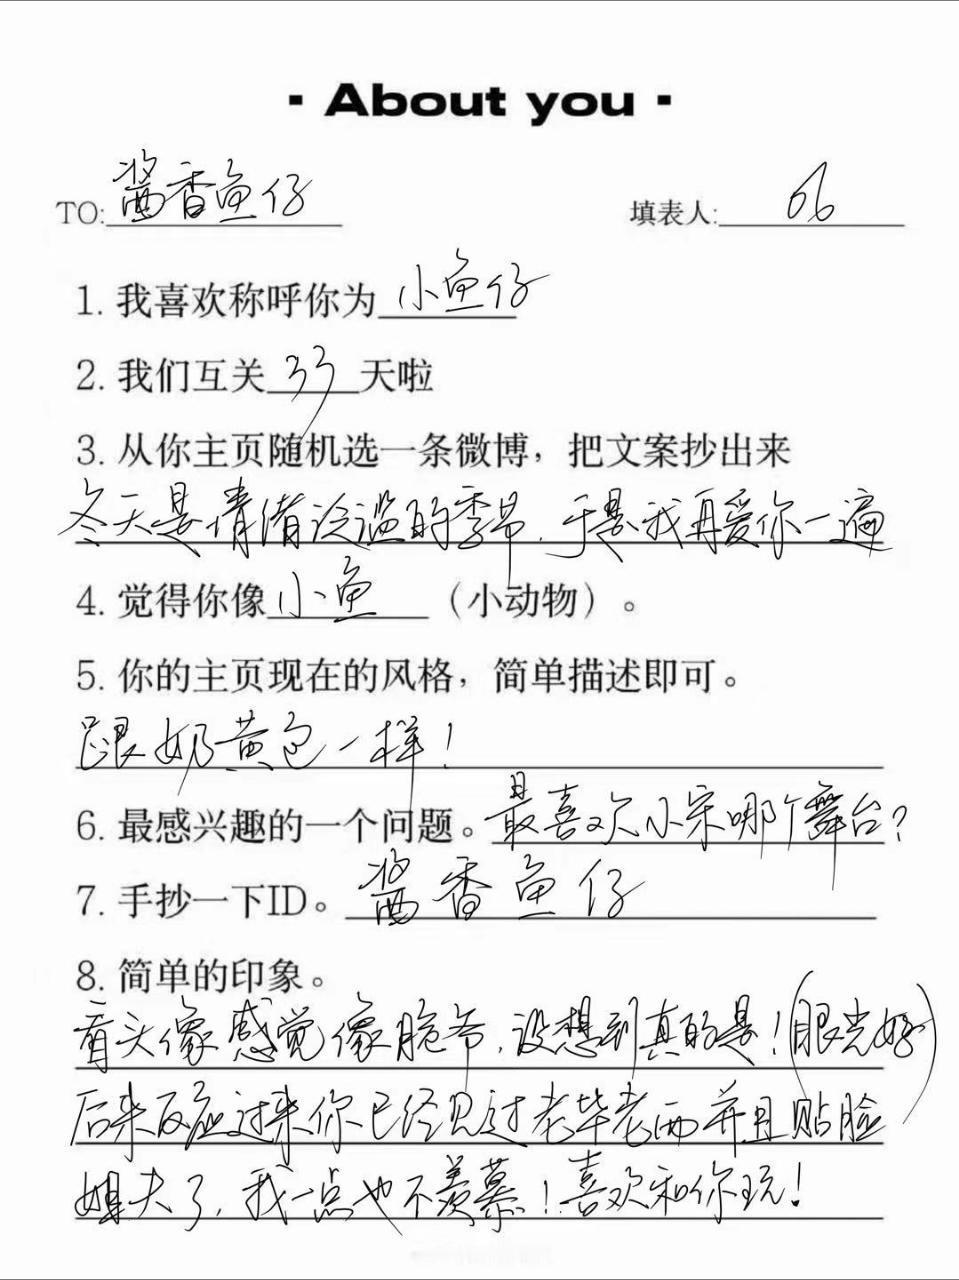 · About you ·
TO: 酱香鱼仔 填表人: 66
1. 我喜欢称呼你为 小鱼仔
2. 我们互关 33 天啦
3. 从你主页随机选一条微博，把文案抄出来
冬天是情绪泛滥的季节，于是我再爱你一遍
4. 觉得你像 小鱼 （小动物）。
5. 你的主页现在的风格，简单描述即可。
跟奶黄包一样！
6. 最感兴趣的一个问题。最喜欢小宋哪个舞台？
7. 手抄一下ID。酱香鱼仔
8. 简单的印象。
看头像感觉像脆爷，没想到真的是！(眼光好)
后来反应过来你已经见过老毕老西并且贴脸
姐夫了，我一点也不羡慕！喜欢和你玩！